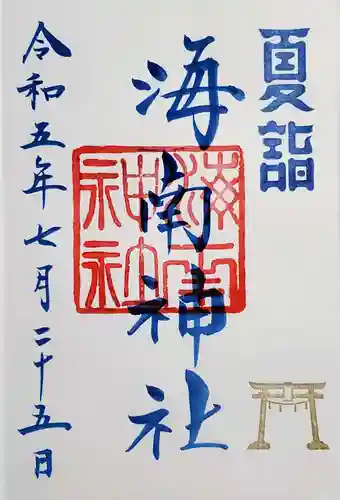 夏詣
海南神社
海南神社
令和五年七月二十五日